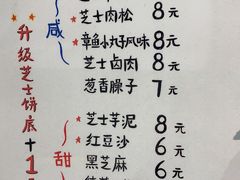 咸
芝士肉松 8元
章鱼小丸子风味 8元
芝士卤肉 8元
葱香臊子 7元
甜
芝士芋泥 8元
红豆沙 6元
黑芝麻 6元
升级芝士饼底+1